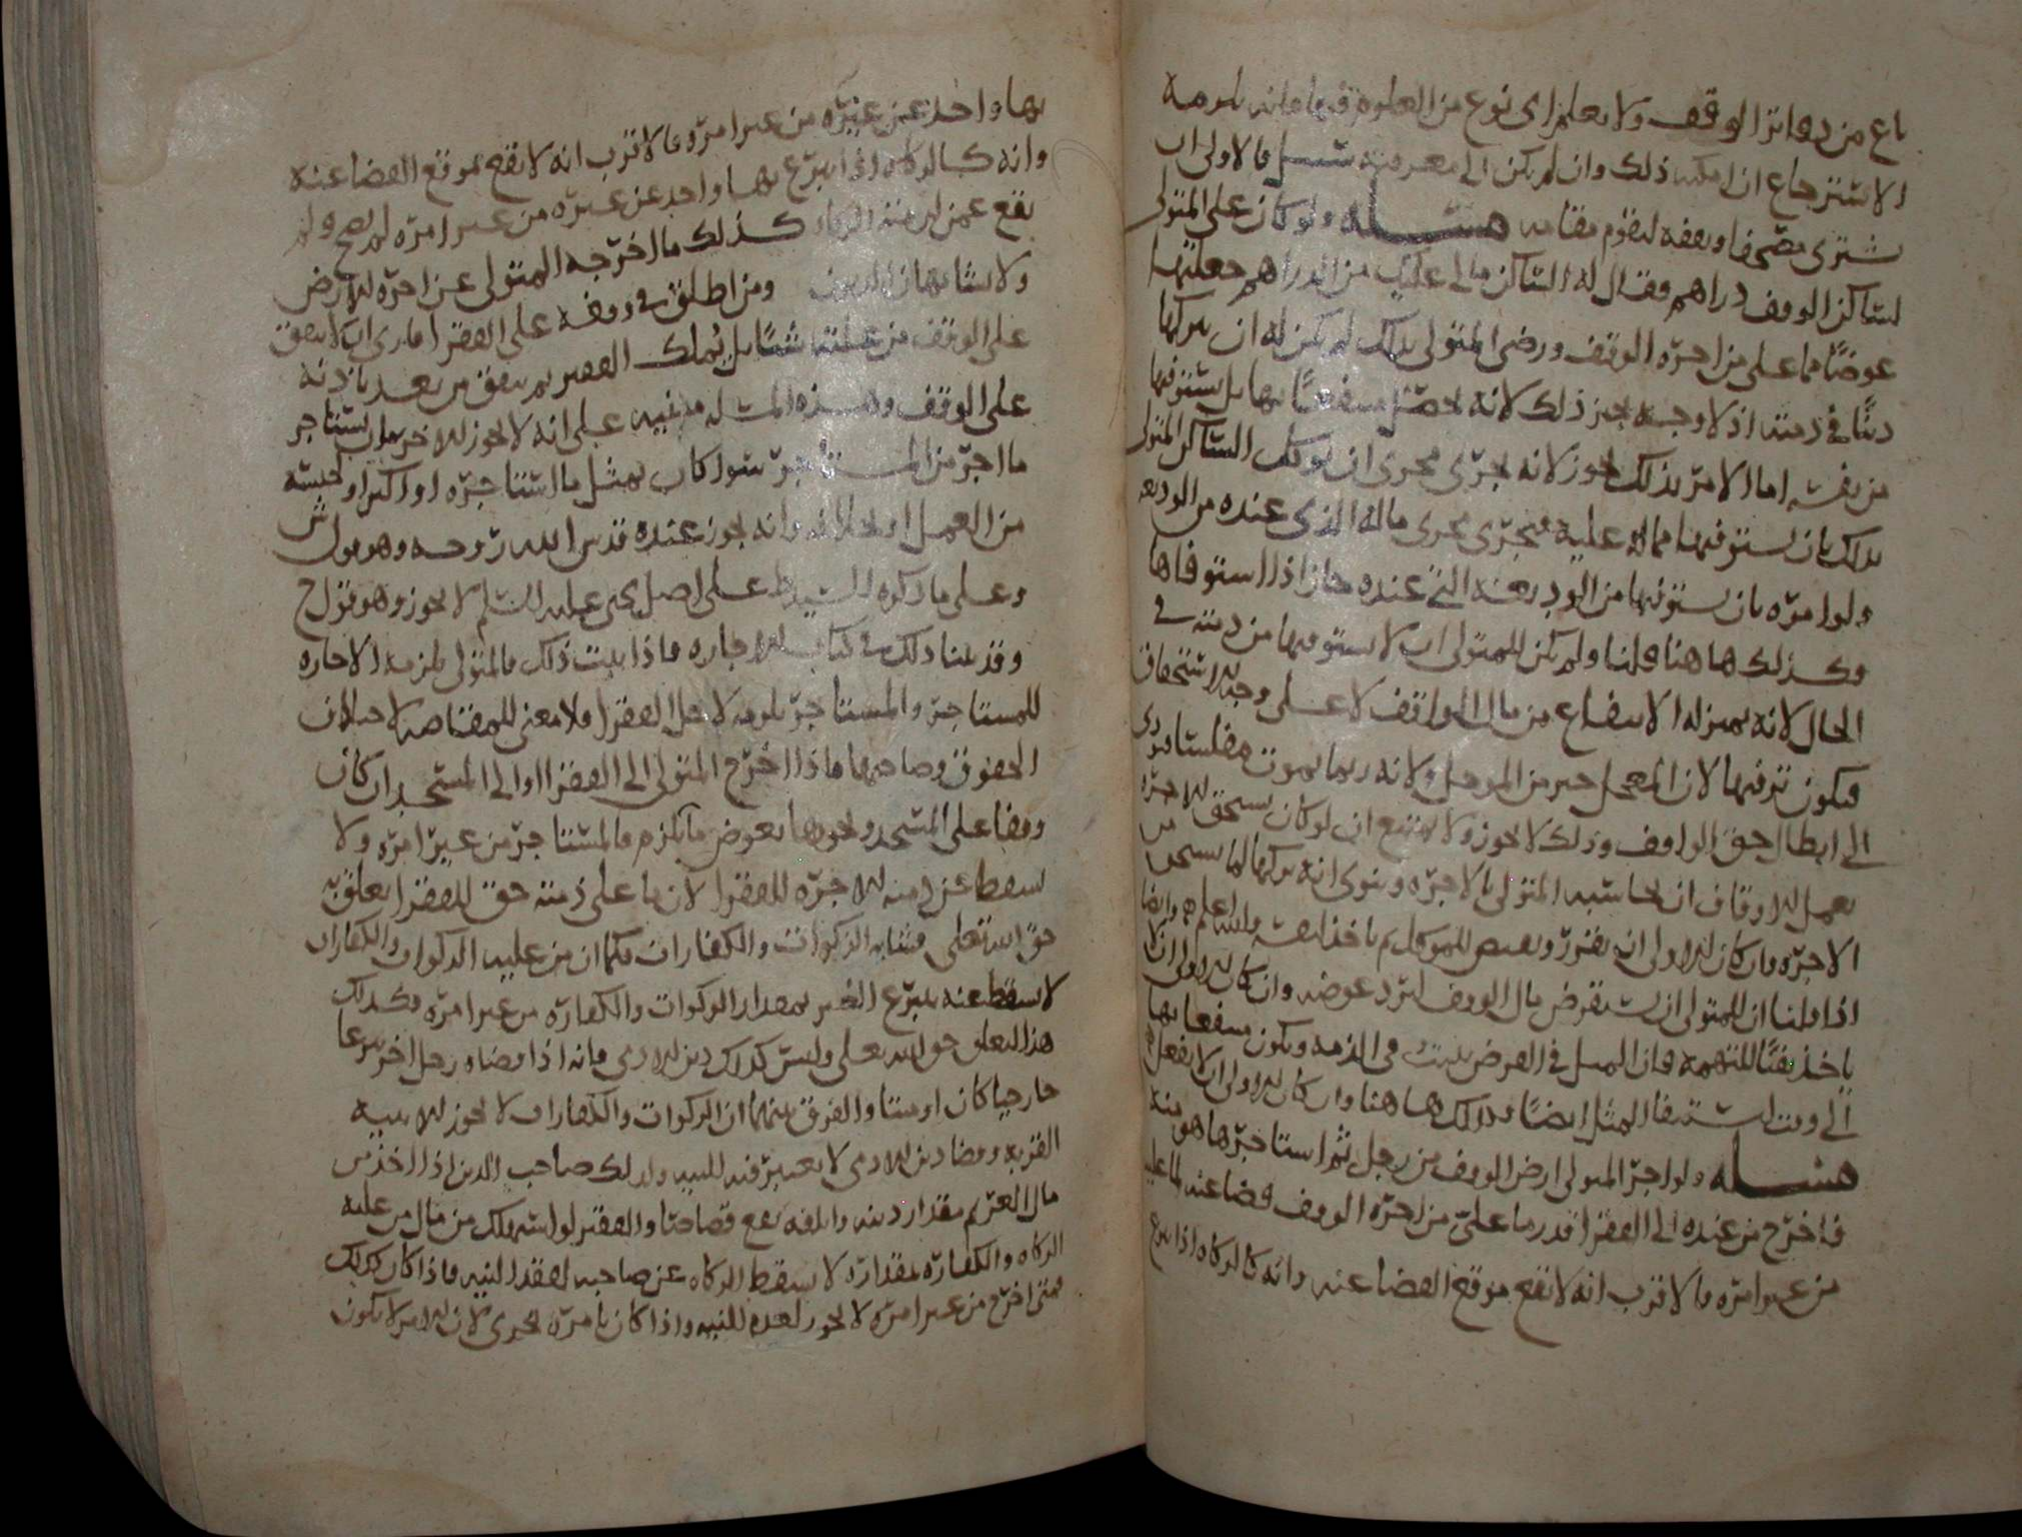 باع من دفاتر الوقف ولا يعلم اى نوع من العلوم فيها فانه يلزمه
الاسترجاع ان امكنه ذلك وان لم يكن الى معرفته سبيل فالاولى ان
يشترى مصحفا ويقفه ليقوم مقامه مسله ولو كان على المتولى
لساكن الوقف دراهم فقال له الساكن مالى عليك من الدراهم جعلتها
عوضًا مما على من اجره الوقف ورضى المتولى بذلك لم يكن له ان يتركها
دينًا فى ذمته اذ لا وجه يجيز ذلك لانه يحصل منتفعًا بها بل يستوفيها
من نفسه اما الامر بذلك فيجوز لانه يجرى مجرى ان يوكل الساكن المتولى
بذلك بان يستوفيها مما له عليه فيجرى مجرى ماله الذى عنده من الوديعه
ولو امره بان يستوفيها من الوديعه التى عنده جاز اذا استوفاها
وكذلك هاهنا قلنا ولم يكن للمتولى ان لا يستوفيها من ذمته فى
الحال لانه بمنزله الانتفاع من مال الواقف لا على وجه الاستحقاق
فيكون ترفيها لان المعجل خير من الموجل ولانه ربما يموت مفلسا فيودى
الى ابطال حق الوقف وذلك لا يجوز ولا يمتنع ان لو كان يستحق الاجره
بعمل للاوقاف ان يحاسبه المتولى بالاجره وينوى انه يتركها لما يستحق من
الاجره وان كان الاولى ان يفرز ويقبض للموكل ثم ياخذ لنفسه والله اعلم وايضا
اذا قلنا ان للمتولى ان يستقرض مال الوقف ليرد عوضه وان كان الاولى ان لا
ياخذ نفيًا للتهمه فان المثل فى القرض يثبت فى الذمه ويكون منتفعا بها
الى وقت استيفا المثل ايضًا فكذلك هاهنا وان كان الاولى ان لا يفعل
مسله ولو اجر المتولى ارض الوقف من رجل ثم استاجرها هو منه
فاخرج من عنده الى الفقرا قدر ما على من اجره الوقف قضا عنه لما عليه
من غير امره فالاقرب انه لا يقع موقع القضا عنه وانه كالزكاه اذا تبرع
بها واحد عن غيره من غير امره فالاقرب انه لا يقع موقع القضا عنه
وانه كالزكاه اذا تبرع بها واحد عن غيره من غير امره لم يصح ولم
يقع عمن لزمته الزكاه كذلك ما اخرجه المتولى عن اجره الارض
ولا يشابه هذا الديون ومن اطلق فى وقفه على الفقرا فارى ان لا ينفق
على الوقف من غلتها شيًا بل يُملك الفقير ثم ينفق من بعد باذنه
على الوقف وهذه المسله مبنيه على انه لا يجوز للاجر ان يستاجر
ما اجر من المستاجر سوا كان بمثل ما استاجره او اكثر او لجنسه
من العمل او بخلافه وانه يجوز عنده قدس الله روحه وهو قول ش
وعلى ما ذكره السيد ط على اصل يحيى عليه السلم لا يجوز وهو قول ح
وقد بينا ذلك فى كتاب الاجاره فاذا ثبت ذلك فالمتولى يلزمه الاجاره
للمستاجر والمستاجر يلزمه لاجل الفقرا ولا معنى للمقاصه لاختلاف
الحقوق وصاحبها فاذا اخرج المتولى الى الفقرا او الى المسجد ان كان
وقفا على المسجد ونحوها بعوض ما يلزم فالمستاجر من غير امره ولا
يسقط عن ذمته الاجره للفقرا لان ما على ذمته حق للفقرا يعلق به
حق الله تعلى فشابه الزكوات والكفارات فكما ان من عليه الزكوات والكفارات
لا يسقط عنه بتبرع الغير بمقدار الزكوات والكفاره من غير امره فكذلك
هذا لتعلق حق الله تعلى وليس كذلك دين الادمى فانه اذا قضاه رجل اخر تبرعا
جاز حيا كان او ميتا والفرق بينهما ان الزكوات والكفارات لا يجوز الا بنيه
القربه وقضا دين الادمى لا يعتبر فيه النيه وكذلك صاحب الدين اذا اخذ من
مال الغريم مقدار دينه واتلفه يقع قصاصًا والفقير لو استهلك من مال من عليه
الزكاه والكفاره بمقداره لا يسقط الزكاه عن صاحبه لفقد النيه فاذا كان كذلك
فمتى اخرج من غير امره لا يجوز لعدم النيه واذا كان بامره يجزى لان الامر لا يكون